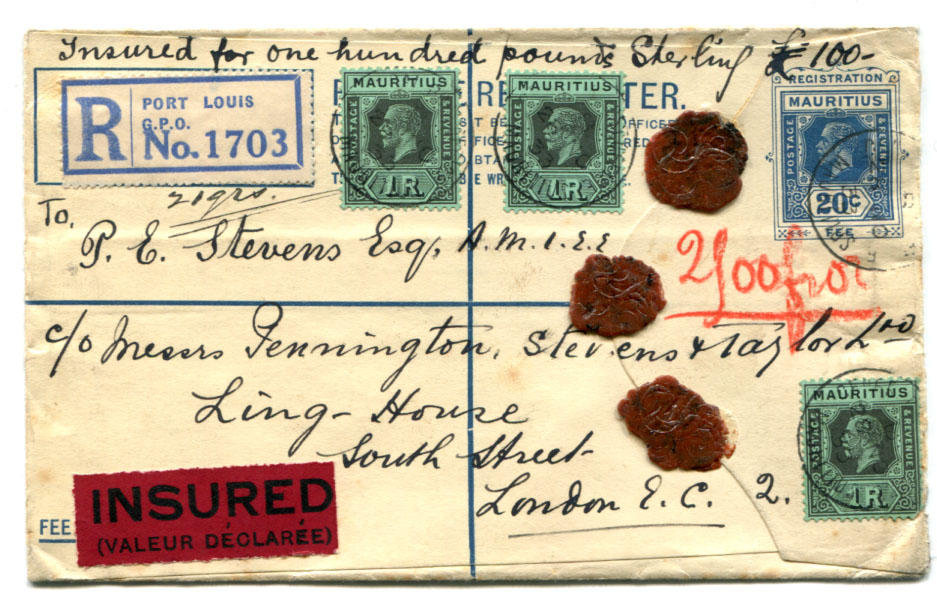 Insured for one hundred pounds Sterling £100-
R PORT LOUIS
G.P.O.
No. 1703
MAURITIUS
POSTAGE & REVENUE
1R
MAURITIUS
POSTAGE & REVENUE
1R
TER.
REGISTRATION
MAURITIUS
POSTAGE & REVENUE
20c
FEE
21grs.
To,
P. E. Stevens Esq, A.M.I.E.E
c/o Messrs Pennington, Stevens & Taylor Ltd
Ling-House
South Street-
London E.C. 2.
MAURITIUS
POSTAGE & REVENUE
1R
INSURED
(VALEUR DÉCLARÉE)
FEE